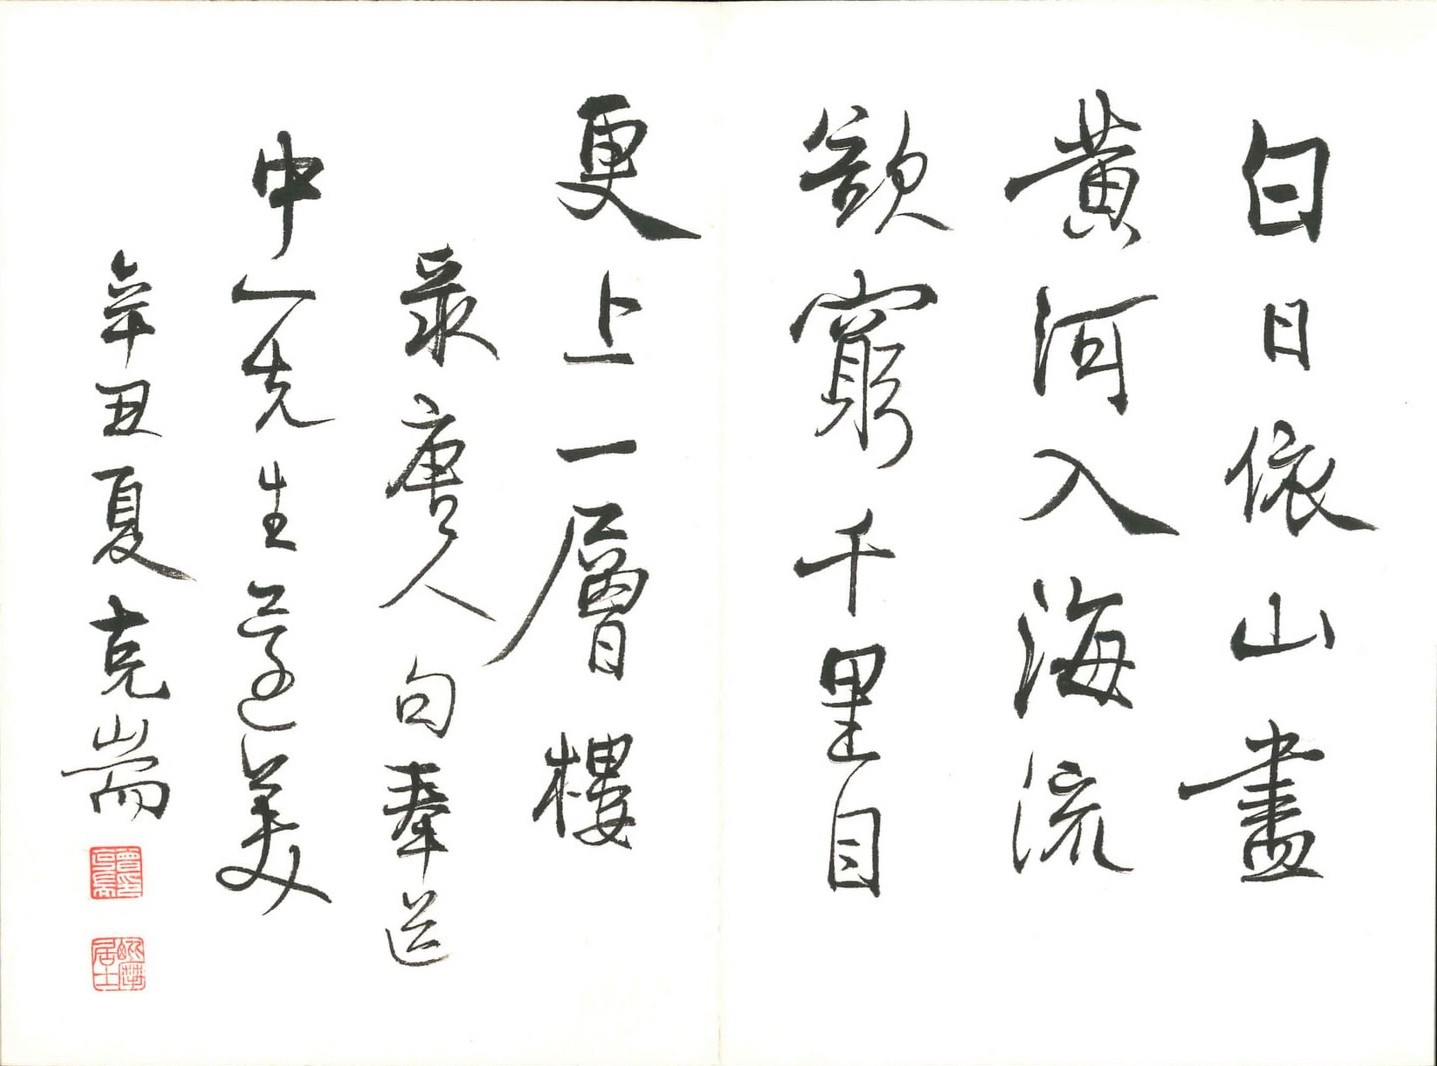 白日依山盡
黃河入海流
欲窮千里目
更上一層樓
录唐人句奉送
中一先生美
辛丑夏克耑
曾印克耑
居士